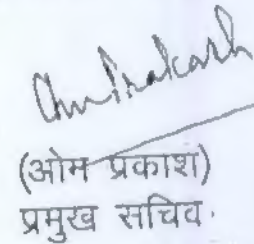 Om Prakash
(ओम प्रकाश)
प्रमुख सचिव.